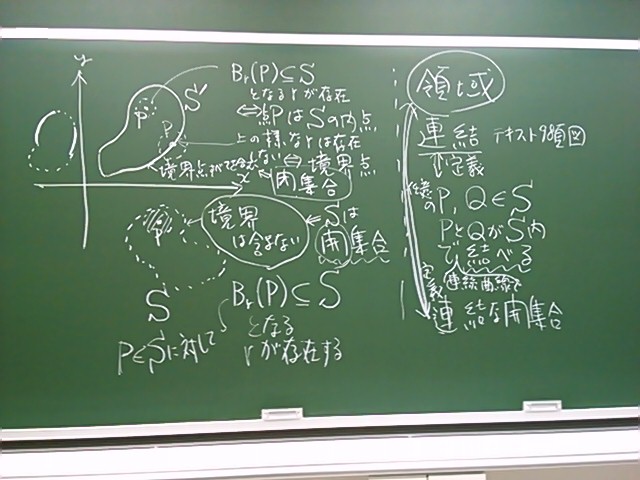 y
x
P
P
S
Br(P)⊆S
となるrが存在
⇔ 点PはSの内点
上の様なrは存在
しない ⇔ 境界点
境界点が
閉集合
P
S
境界
は含まない
← Sは
開集合
P∈Sに対して
Br(P)⊆S
となる
rが存在する
領域
連結 テキスト98頁図
定義
P, Q∈S
PとQがS内
で結べる
連続曲線で
定義
連結な開集合